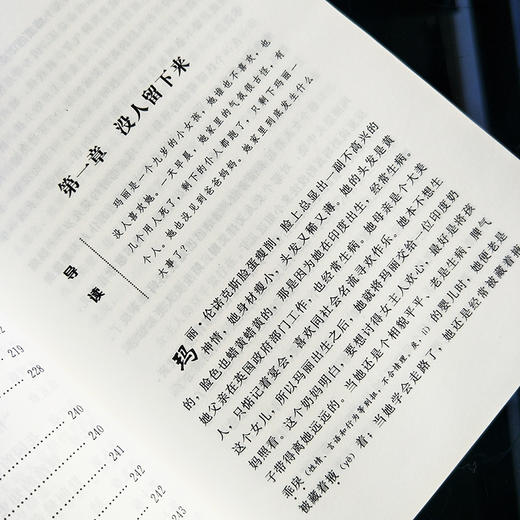 第一章 没人留下来
导读
玛丽是一个九岁的小女孩，她谁也不喜欢，也
没人喜欢她。一天早晨，她家里的气氛很古怪，有
几个用人死了，剩下的仆人都跑了，只剩下玛丽一
个人。她也没见到爸爸妈妈。她家里到底发生什么
大事了？
玛丽·伦诺克斯脸蛋瘦削，脸上总显出一副不高兴的
神情，她身材瘦小，头发又稀又薄。她的头发是黄
的，脸色也蜡黄蜡黄的，那是因为她在印度出生，经常生病。
她父亲在英国政府部门工作，也经常生病。她母亲是个大美
人，只惦记着宴会；喜欢同社会名流寻欢作乐。她本不想生
这个女儿，所以玛丽出生之后，她就将玛丽交给一位印度奶
妈照看。这个奶妈明白，要想讨得女主人欢心，最好是将孩
子带得离她远远的。当她还是个相貌平平、老是生病、脾气
乖戾（性情、言语和行为等别扭，不合情理。戾，lì）的婴儿时，她便老是
被藏着掖（yē）着；当她学会走路了，她还是经常被藏着掖
219
228
240
240
241
242
242
243